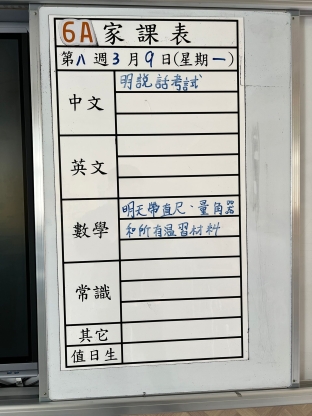 6A 家課表
第八週3月9日(星期一)
中文
明說話考試
英文
數學
明天帶直尺、量角器
和所有溫習材料
常識
其它
值日生